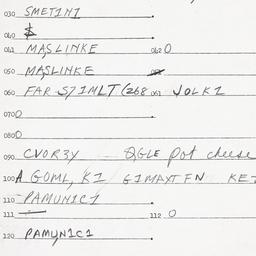 030 SMETINI
040 $
041 MASLINKE 042 0
050 MASLINKE
060 FAR S71MLT (268 061 JOLK1
070 0
080 0
090 CVOR3Y QGLE pot cheese
100 A GOML, K1 G1MAXT FN KE
110 PAMUN1C1
111 — 112 0
120 PAMUN1C1